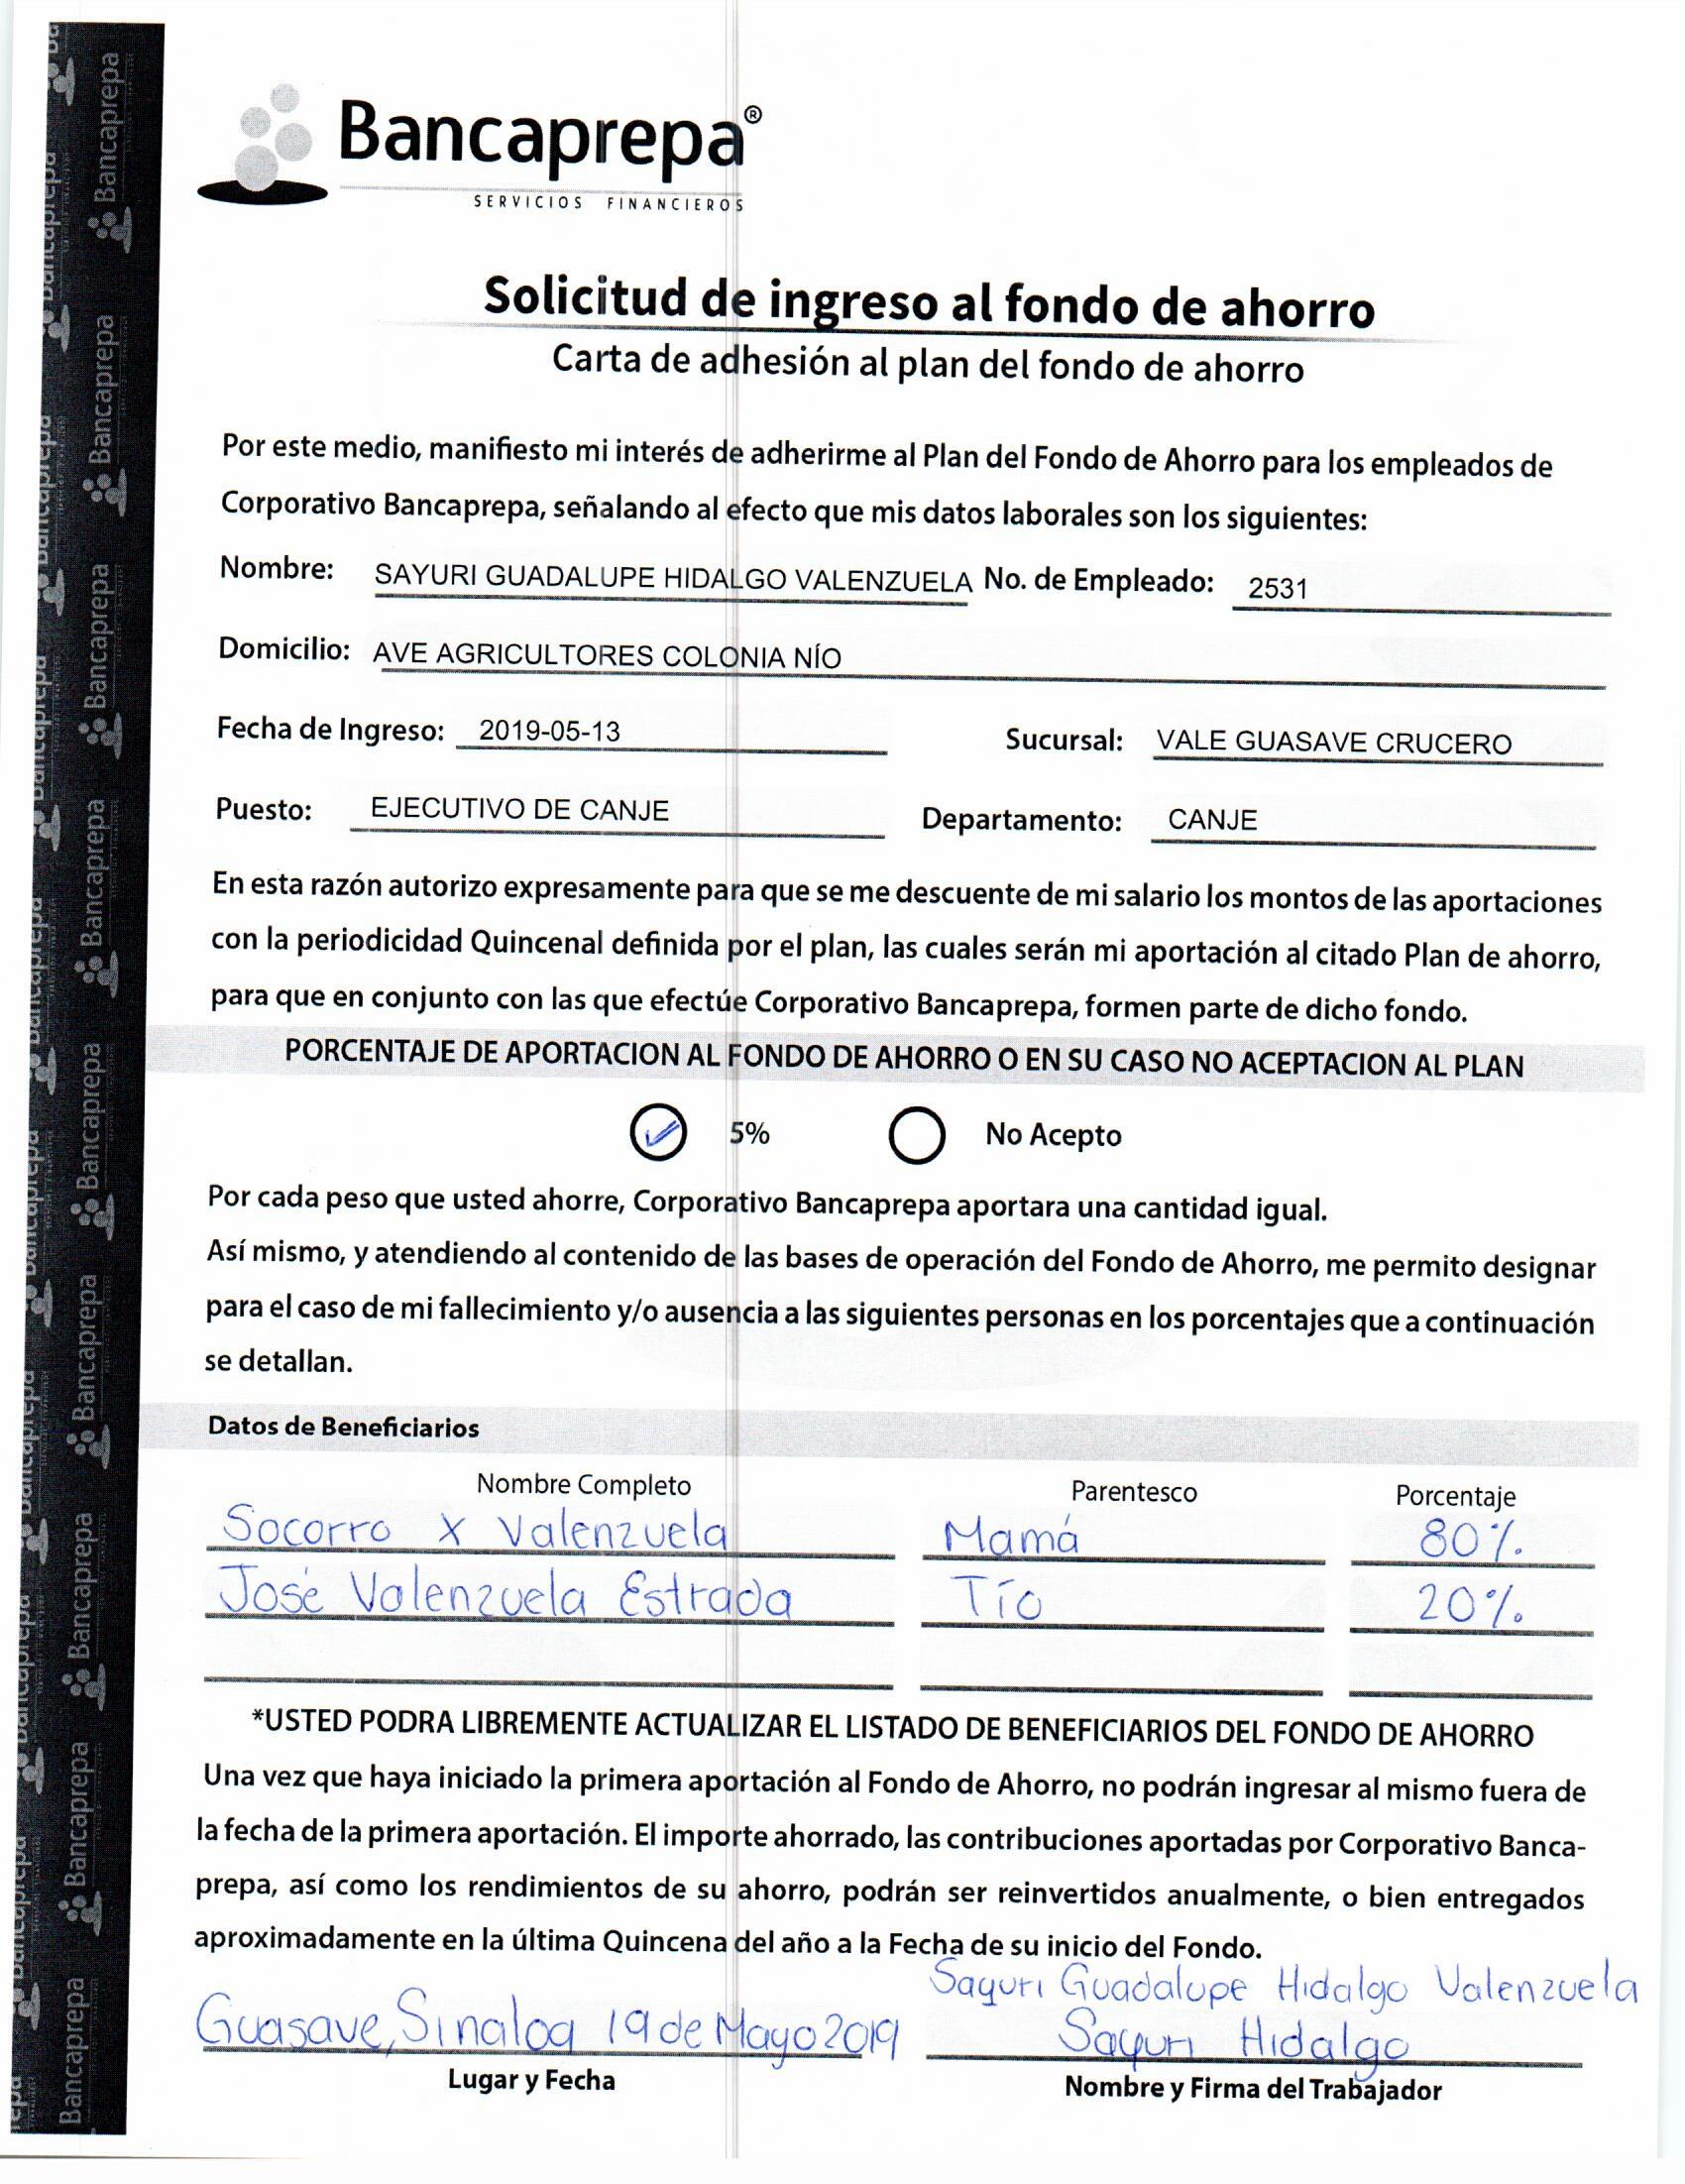 Bancaprepa®
SERVICIOS FINANCIEROS
Solicitud de ingreso al fondo de ahorro
Carta de adhesión al plan del fondo de ahorro
Por este medio, manifiesto mi interés de adherirme al Plan del Fondo de Ahorro para los empleados de
Corporativo Bancaprepa, señalando al efecto que mis datos laborales son los siguientes:
Nombre: SAYURI GUADALUPE HIDALGO VALENZUELA No. de Empleado: 2531
Domicilio: AVE AGRICULTORES COLONIA NÍO
Fecha de Ingreso: 2019-05-13 Sucursal: VALE GUASAVE CRUCERO
Puesto: EJECUTIVO DE CANJE Departamento: CANJE
En esta razón autorizo expresamente para que se me descuente de mi salario los montos de las aportaciones
con la periodicidad Quincenal definida por el plan, las cuales serán mi aportación al citado Plan de ahorro,
para que en conjunto con las que efectúe Corporativo Bancaprepa, formen parte de dicho fondo.
PORCENTAJE DE APORTACION AL FONDO DE AHORRO O EN SU CASO NO ACEPTACION AL PLAN
5% No Acepto
Por cada peso que usted ahorre, Corporativo Bancaprepa aportara una cantidad igual.
Así mismo, y atendiendo al contenido de las bases de operación del Fondo de Ahorro, me permito designar
para el caso de mi fallecimiento y/o ausencia a las siguientes personas en los porcentajes que a continuación
se detallan.
Datos de Beneficiarios
Nombre Completo Parentesco Porcentaje
Socorro X Valenzuela Mamá 80%
José Valenzuela Estrada Tío 20%
*USTED PODRA LIBREMENTE ACTUALIZAR EL LISTADO DE BENEFICIARIOS DEL FONDO DE AHORRO
Una vez que haya iniciado la primera aportación al Fondo de Ahorro, no podrán ingresar al mismo fuera de
la fecha de la primera aportación. El importe ahorrado, las contribuciones aportadas por Corporativo Banca-
prepa, así como los rendimientos de su ahorro, podrán ser reinvertidos anualmente, o bien entregados
aproximadamente en la última Quincena del año a la Fecha de su inicio del Fondo.
Sayuri Guadalupe Hidalgo Valenzuela
Guasave, Sinaloa 19 de Mayo 2019 Sayuri Hidalgo
Lugar y Fecha Nombre y Firma del Trabajador